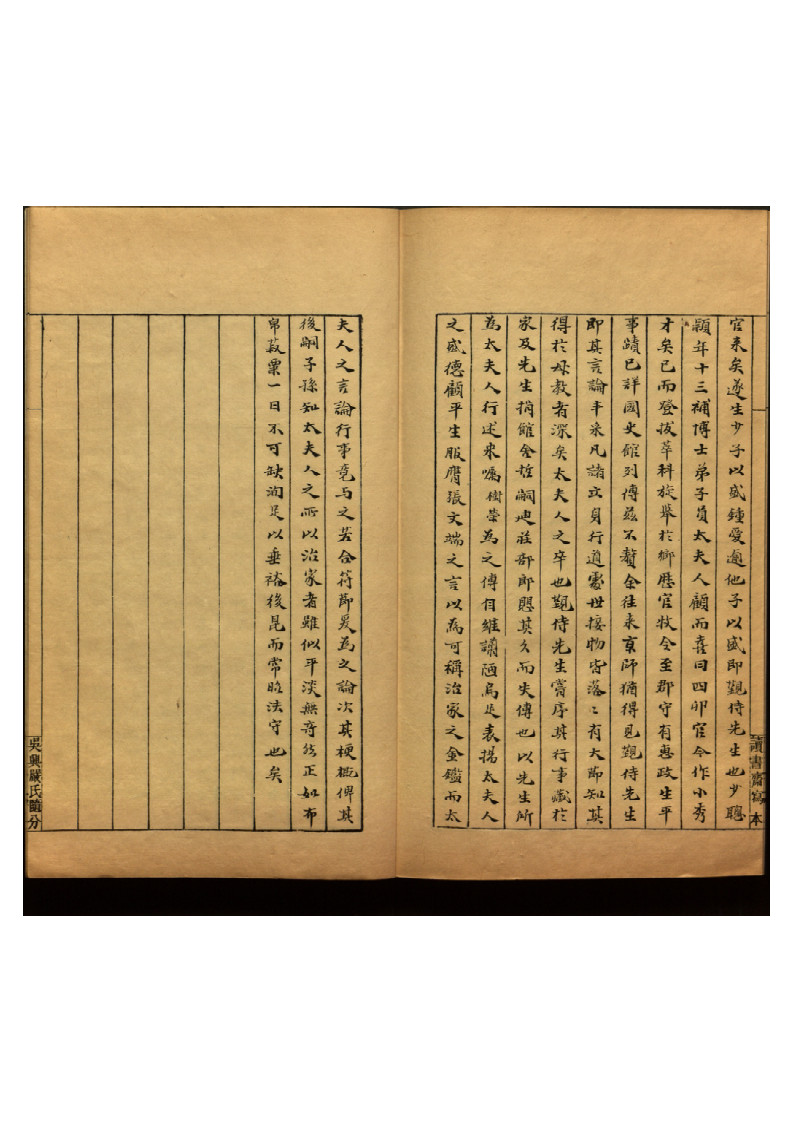 官来矣遂生少子以盛鍾愛逾他子以盛即覲侍先生也少聰
穎年十三補博士弟子員太夫人顧而喜曰四卯官今作小秀
才矣已而登拔萃科旋舉於鄉歷官牧令至郡守有惠政生平
事蹟已詳國史館列傳茲不贅余往来京師猶得見覲侍先生
即其言論丰采凡諸立身行道處世接物皆落〻有大節知其
得於母教者深矣太夫人之卒也覲侍先生嘗序其行事藏於
家及先生捐館令哲嗣迪莊部郎懼其久而失傳也以先生所
為太夫人行述来囑樹棠為之傳自維譾陋烏足表揚太夫人
之盛德顧平生服膺張文端之言以為可稱治家之金鑑而太
夫人之言論行事竟与之若合符節爰為之論次其梗概俾其
後嗣子孫知太夫人之所以治家者雖似平淡無奇然正如布
帛菽粟一日不可缺洵足以垂裕後昆而常昭法守也矣
讀書齋寫本
吳興嚴氏隨分